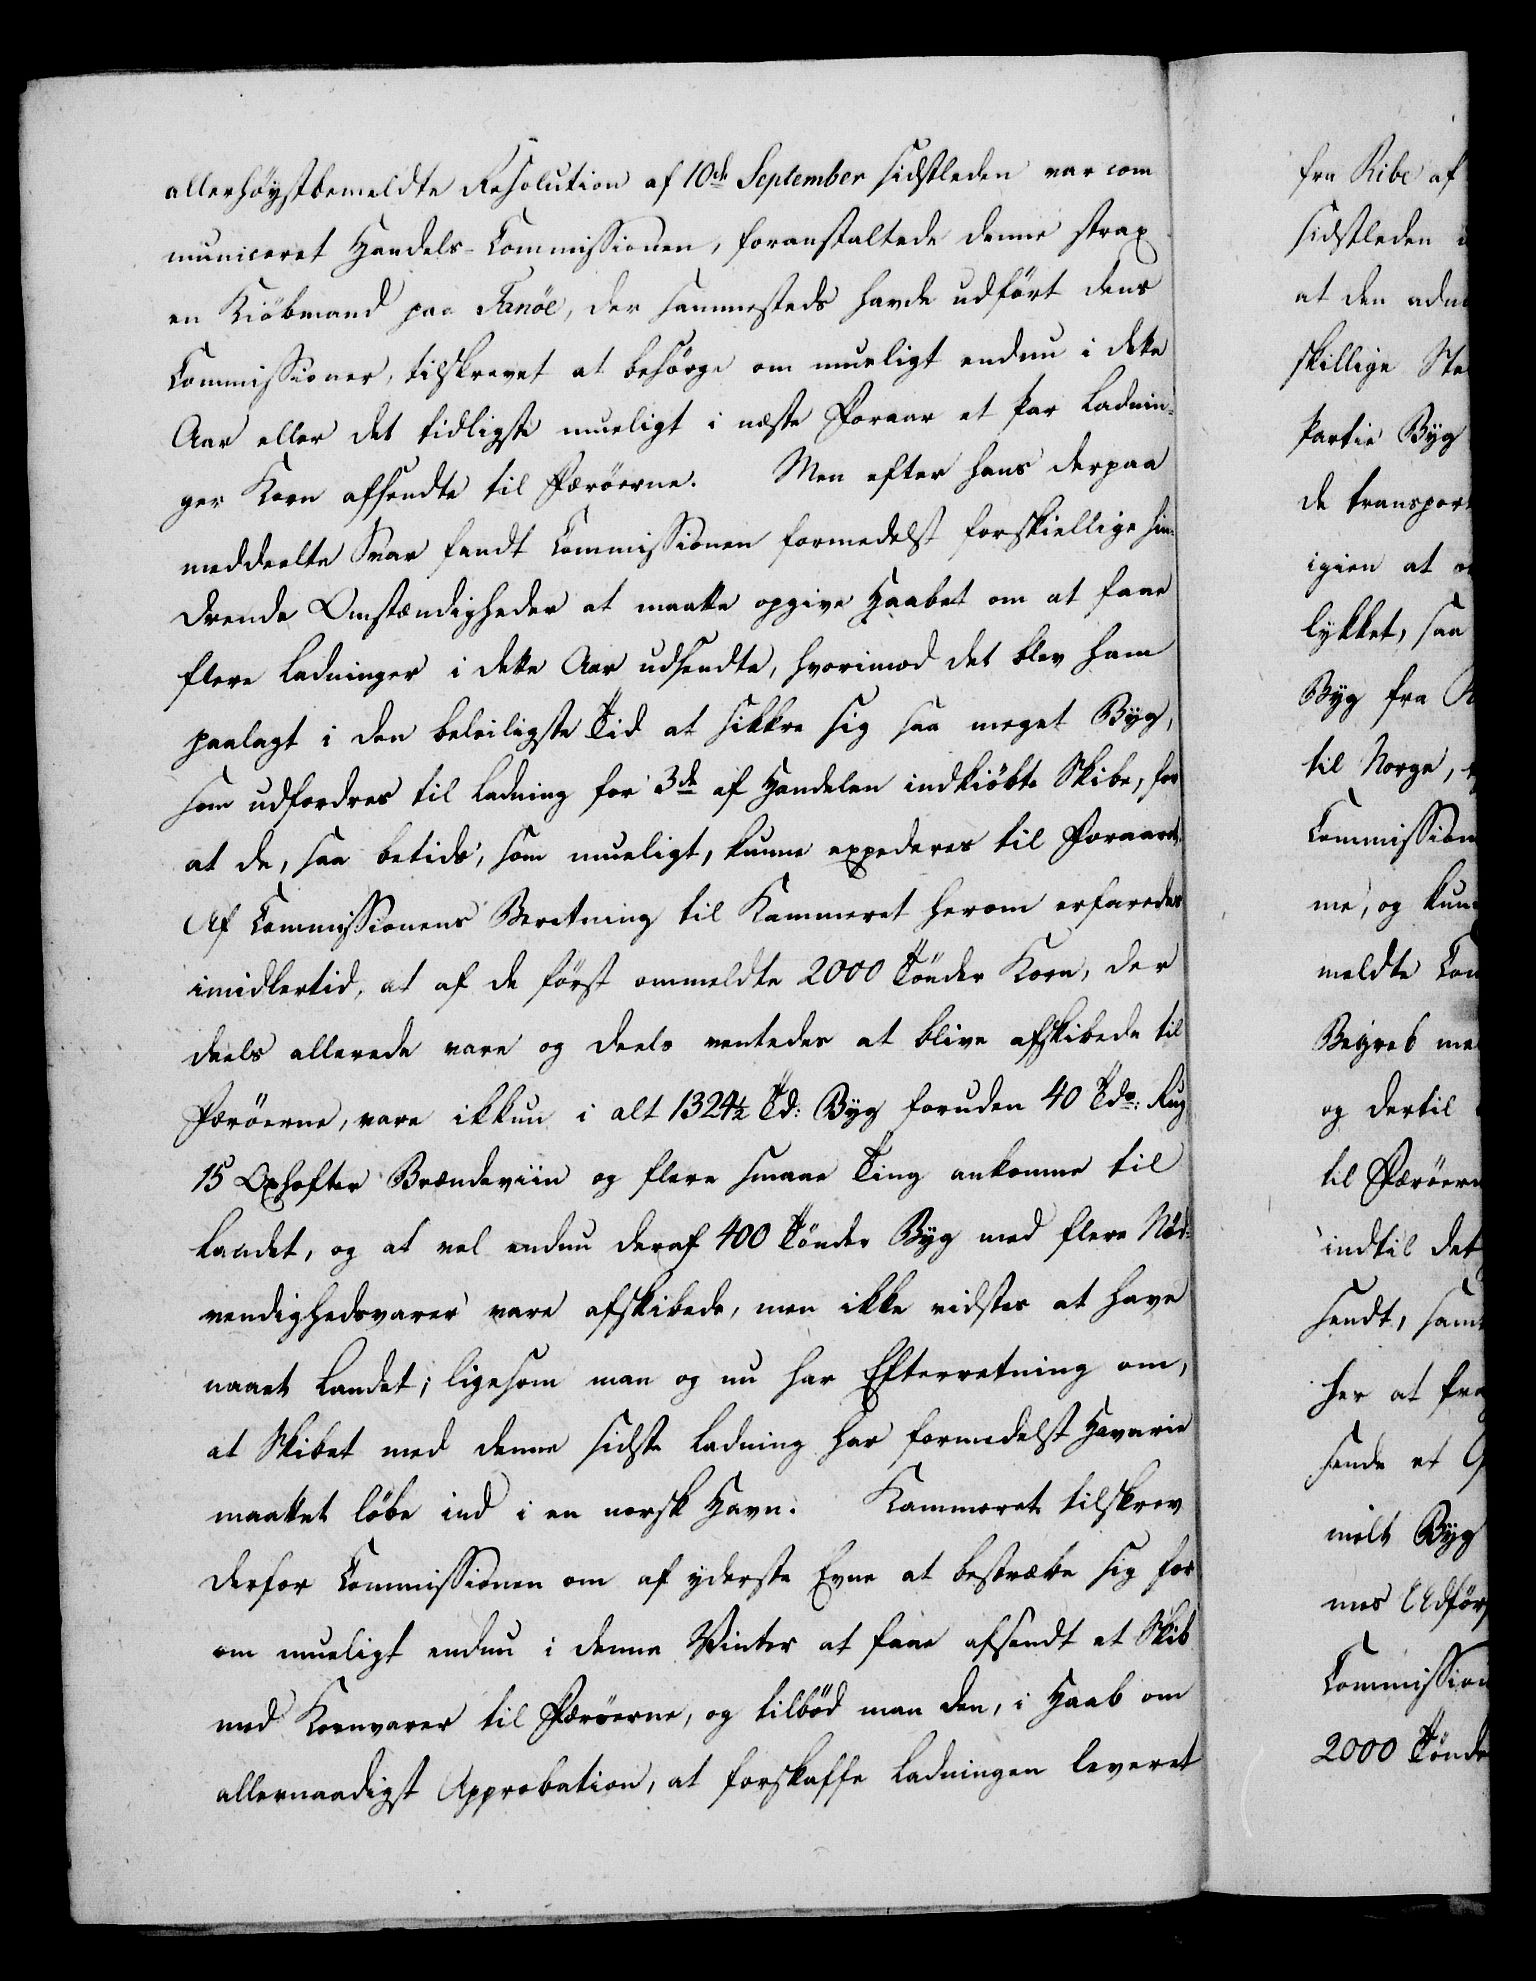 allerhöystbemeldte Resolution af 10de September sidstleden var com
municeret Handels-Commissionen, foranstaltede denne strax
en Kiöbmand paa Fanöe, der sammesteds havde udfört dens
Commissioner, tilskrevet at besörge om mueligt endnu i dette
Aar eller det tidligste mueligt i næste Foraar et Par Ladnin-
ger Korn afsendte til Færöerne. Men efter hans derpaa
meddeelte Svar fandt Commissionen formedelst forskiellige hin-
drende Omstændigheder at maatte opgive Haabet om at faae
flere Ladninger i dette Aar udsendte, hvorimod det blev ham
paalagt i den beleiligste Tid at sikkre sig saa meget Byg,
som udfordres til Ladning for 3de af Handelen indkiöbte Skibe, for
at de, saa betids, som mueligt, kunne expederes til Foraaret.
Af Commissionens Beretning til Kammeret herom erfaredes
imidlertid, at af de först ommeldte 2000 Tönder Korn, der
deels allerede vare og deels ventedes at blive afskibede til
Færöerne, vare ikkun i alt 1324½ Td: Byg foruden 40 Tdr: Rug
15 Oxhofter Brændeviin og flere smaae Ting ankomne til
Landet, og at vel endnu deraf 400 Tönder Byg med flere Nöd-
vendighedsvarer vare afskibede, men ikke vidstes at have
naaet Landet; ligesom man og nu har Efterretning om,
at Skibet med denne sidste Ladning har formedelst Havarie
maattet löbe ind i en norsk Havn. Kammeret tilskrev
derfor Commissionen om af yderste Evne at bestræbe sig for
om mueligt endnu i denne Vinter at faae afsendt et Skib
med Kornvarer til Færöerne, og tilböd man den, i Haab om
allernaadigst Approbation, at forskaffe Ladningen leveret
fra Ribe af
sidstleden
at den
skillige
Partie Byg
de
igien at
lykket, saa
Byg fra
til Norge,
Commission
me, og
meldte
Begreb
og dertil
til
indtil det
sendt,
her at
sende et
melt Byg
nes
Commission
2000